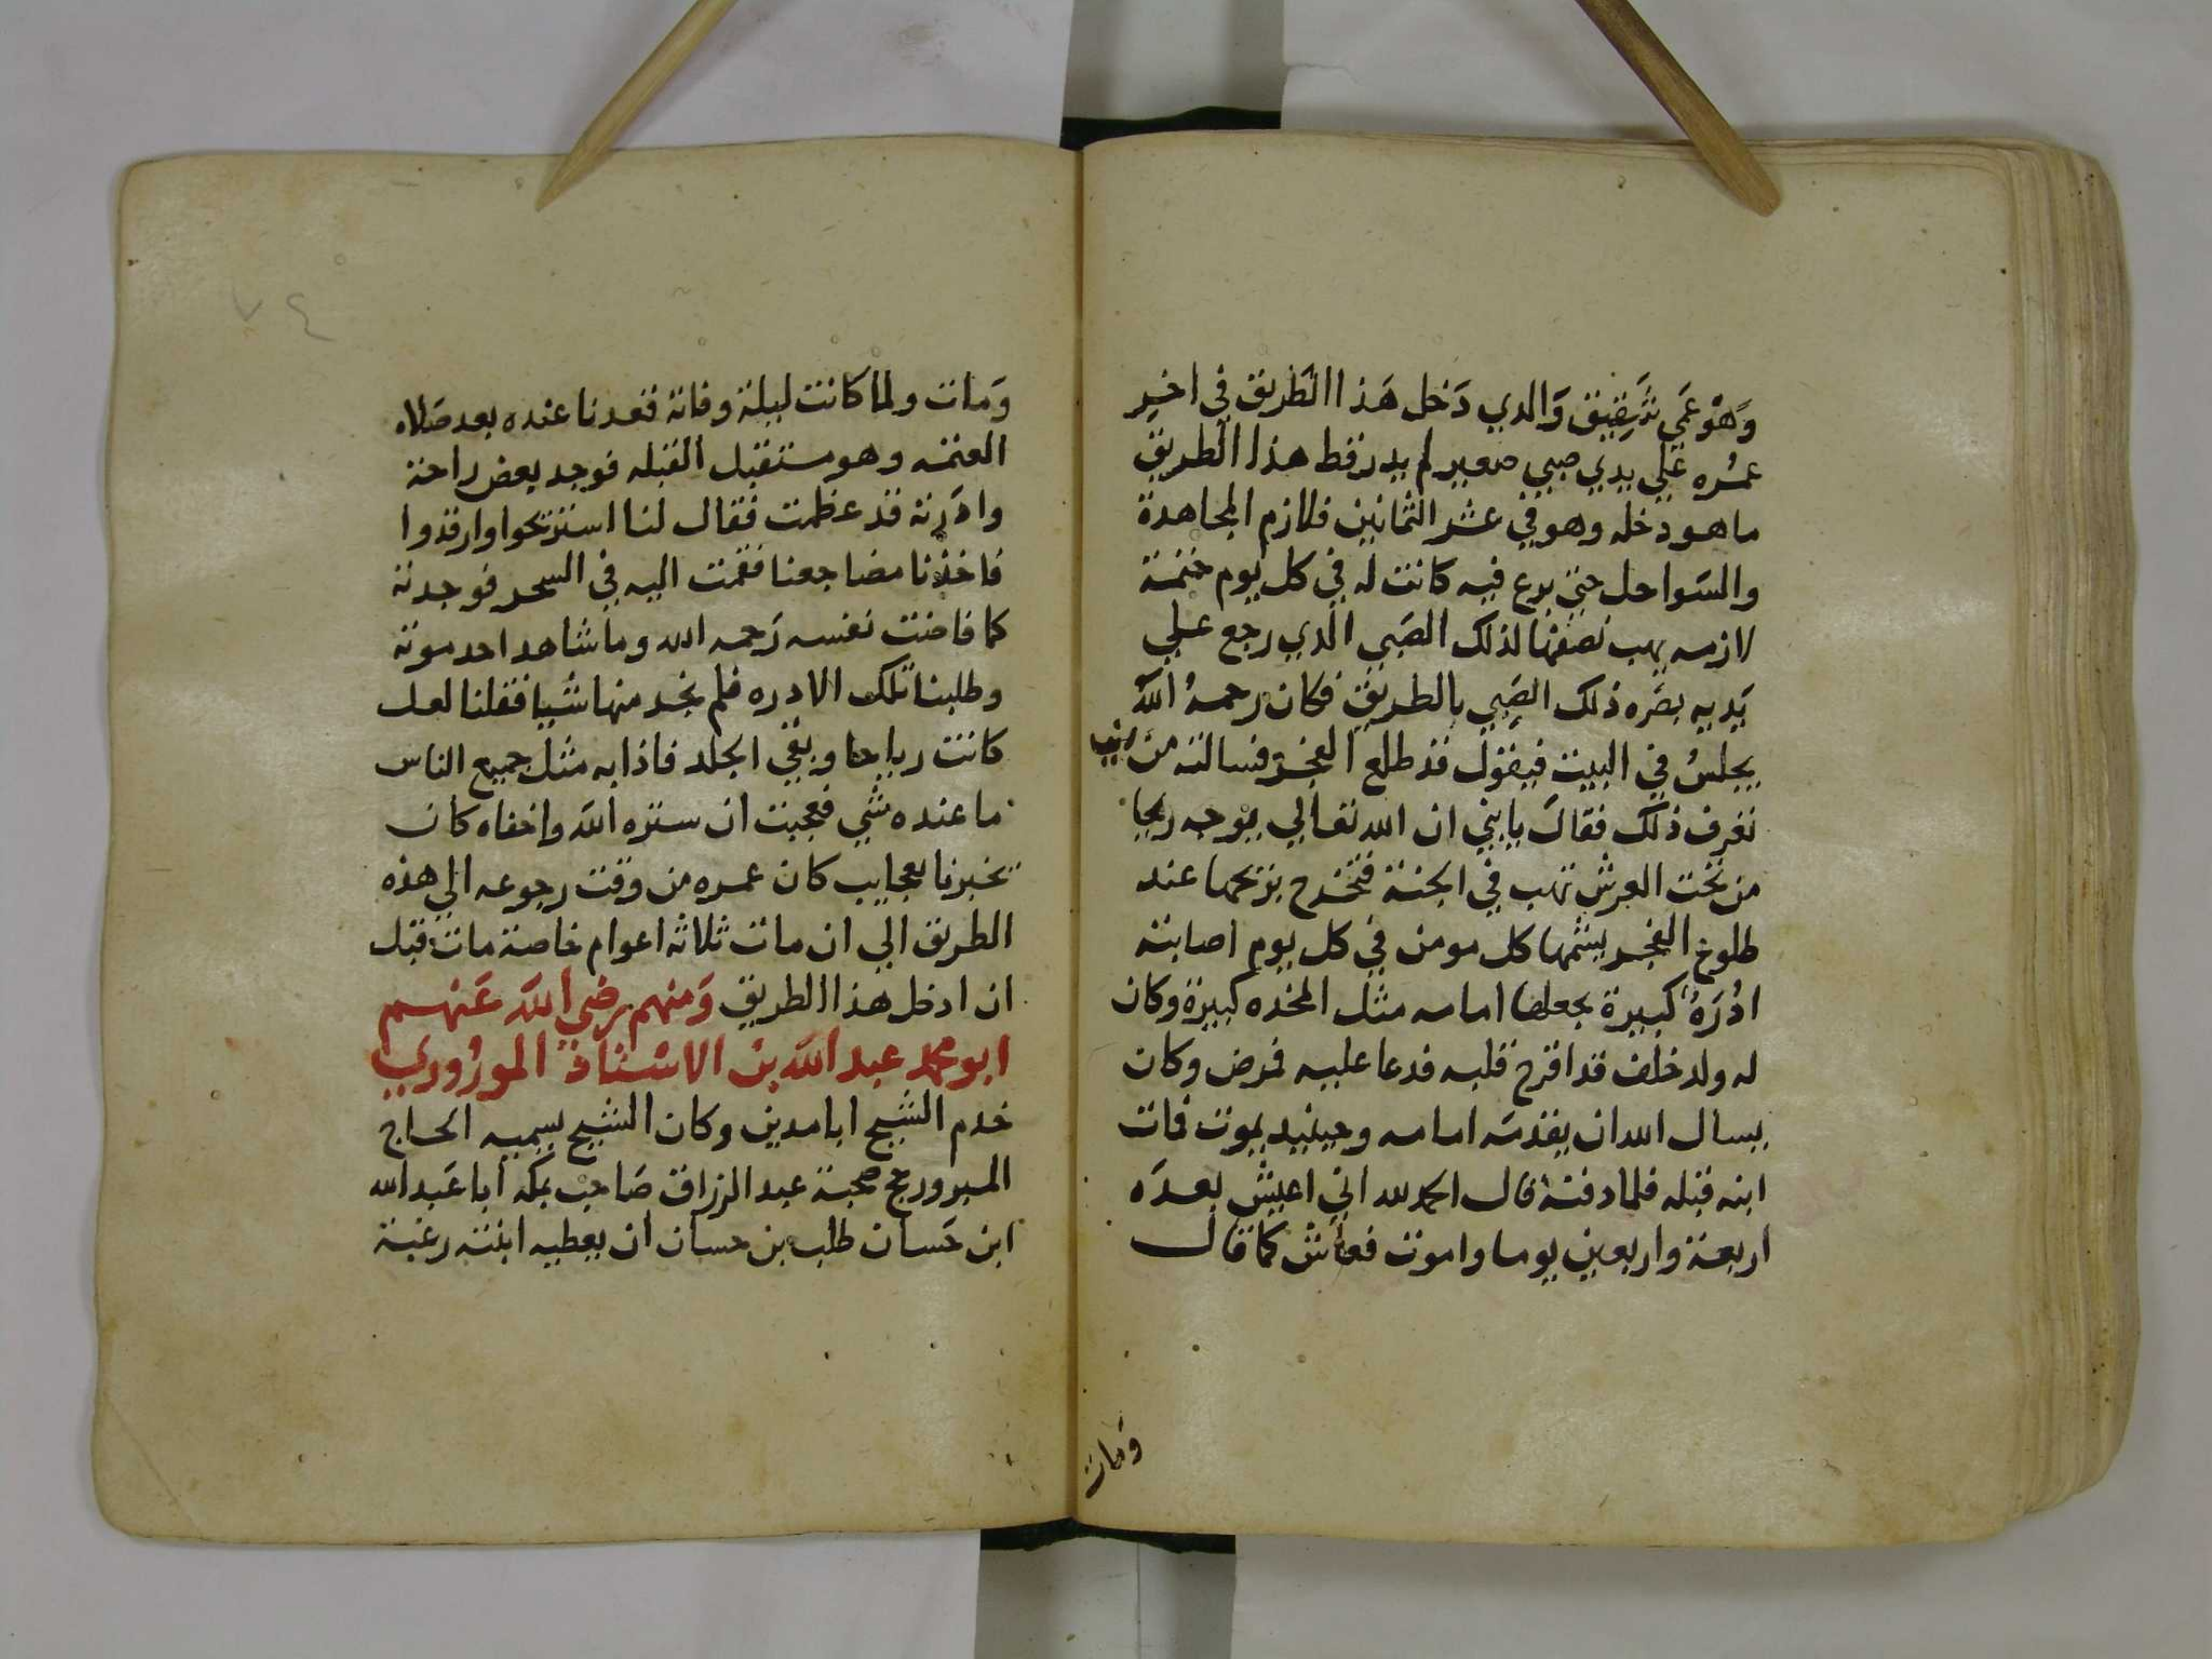 وهو عمي شقيق والدي دخل هذا الطريق في اخير
عمره علي يدي صبي صغير لم يدر قط هذا الطريق
ما هو دخله وهو في عشر الثمانين فلازم المجاهدة
والسواحل حتي برع فيه كانت له في كل يوم ختمة
لازمه يهب نصفها لذلك الصبي الذي رجع علي
يديه بصره ذلك الصبي بالطريق فكان رحمه الله
يجلس في البيت فيقول قد طلع الفجر فسالته من اين
تعرف ذلك فقال يا بني ان الله تعالي يوجه ريحا
من تحت العرش تهب في الجنة فتخرج بريحها عند
طلوع الفجر يشمها كل مومن في كل يوم اصابته
ادره كبيرة يجعلها امامه مثل المخده كبيرة وكان
له ولد خلف قد اقرح قلبه فدعا عليه فمرض وكان
يسال الله ان يقدمه امامه وحينيد يموت فمات
ابنه قبله فلما دفنه قال الحمد لله اني اعيش بعده
اربعة واربعين يوما واموت فعاش كما قال
ومات
٧٤
ومات ولما كانت ليلة وفاته قعدنا عنده بعد صلاه
العتمه وهو مستقبل القبله فوجد بعض راحة
وادرته قد عظمت فقال لنا استريحوا وارقدوا
فاخذنا مضاجعنا فقمت اليه في السحر فوجدته
كما فاضت نفسه رحمه الله وما شاهد احد موته
وطلبنا تلك الادره فلم نجد منها شيا فقلنا لعل
كانت رياحا وبقي الجلد فاذا به مثل جميع الناس
ما عنده شي فعجبت ان ستره الله واخفاه كان
يخبرنا بعجايب كان عمره من وقت رجوعه الي هذه
الطريق الي ان مات ثلاثه اعوام خاصة مات قبل
ان ادخل هذا الطريق ومنهم رضي الله عنهم
ابو محمد عبد الله بن الاستاذ الموروري
خدم الشيخ ابا مدين وكان الشيخ يسميه الحاج
المبرور حج صحبة عبد الرزاق صاحب بمكه ابا عبد الله
ابن حسان طلب بن حسان ان يعطيه ابنته رغبة